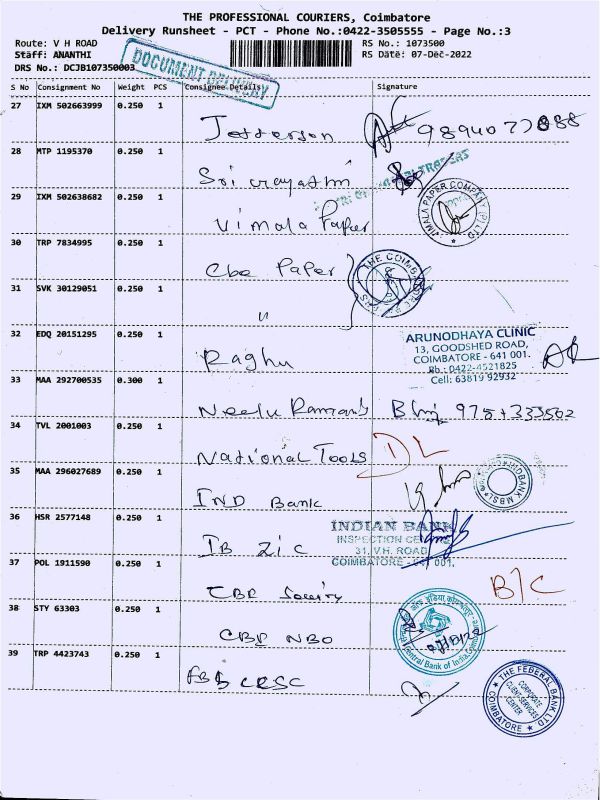 THE PROFESSIONAL COURIERS, Coimbatore
Delivery Runsheet - PCT - Phone No.:0422-3505555 - Page No.:3
Route: V H ROAD RS No.: 1073500
Staff: ANANTHI RS Date: 07-Dec-2022
DRS No.: DCJB107350003
DOCUMENT DELIVERY
S No Consignment No Weight PCS Consignee Details Signature
27 IXM 502663999 0.250 1
Jefferson
28 MTP 1195370 0.250 1
Sri
TRADERS
29 IXM 502638682 0.250 1
Vimala Paper
VIMALA PAPER COMPANY (P) LTD
30 TRP 7834995 0.250 1
Cbe Paper
THE COIMBATORE
31 SVK 30129051 0.250 1
"
32 EDQ 20151295 0.250 1
Raghu
ARUNODHAYA CLINIC
13, GOODSHED ROAD,
COIMBATORE - 641 001.
Ph : 0422-4521825
Cell: 63819 92932
33 MAA 292700535 0.300 1
Neelu
34 TVL 2001003 0.250 1
National Tools DL
35 MAA 296027689 0.250 1
IND Bank
INDBANK MBSL
36 HSR 2577148 0.250 1
IB ZIC
INDIAN BANK
INSPECTION CENTRE
31, V.H. ROAD
COIMBATORE - 641 001.
37 POL 1911590 0.250 1
CBE B/C
38 STY 63303 0.250 1
CBE NBO
Central Bank of India
39 TRP 4423743 0.250 1
FBL CRSC
THE FEDERAL BANK LTD
CORPORATE
CLIENT-SERVICES
CENTER
COIMBATORE